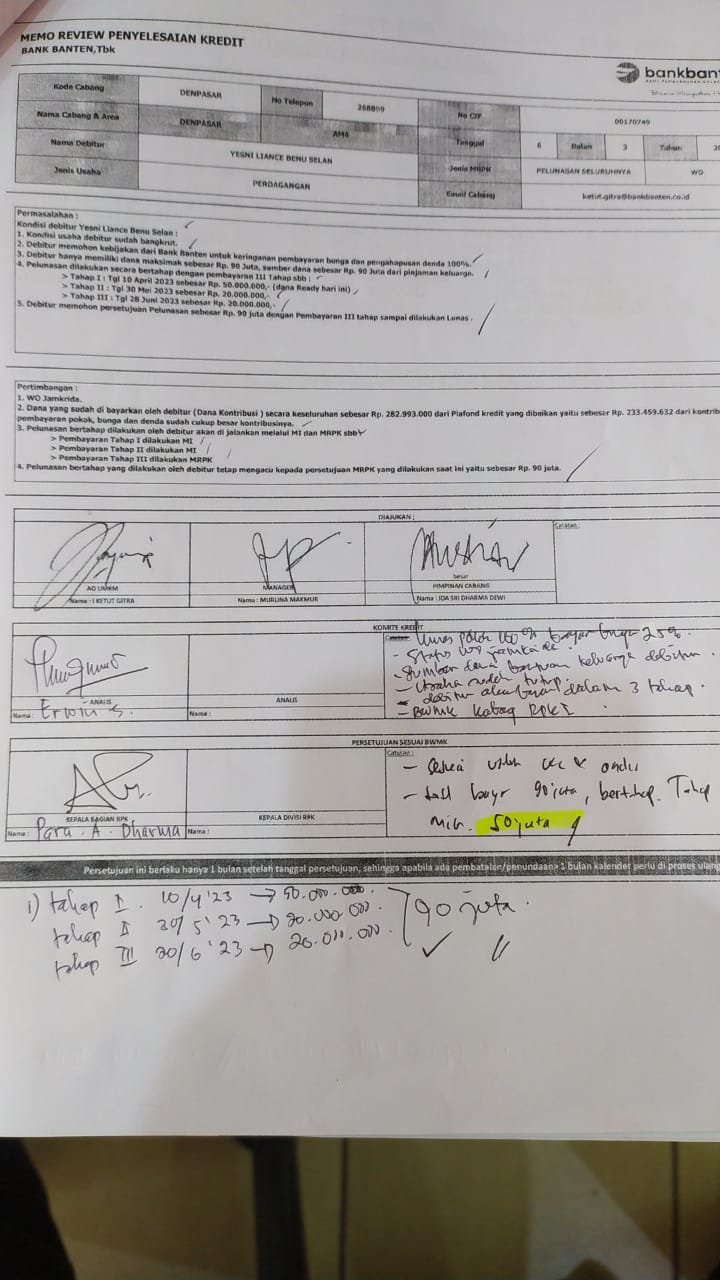 MEMO REVIEW PENYELESAIAN KREDIT
BANK BANTEN,Tbk
bankban
Kode Cabang DENPASAR No Telepon 268899 No CIF 00170749
Nama Cabang & Area DENPASAR AM4 Tanggal 6 Bulan 3 Tahun 20
Nama Debitur YESNI LIANCE BENU SELAN Jenis MRPK PELUNASAN SELURUHNYA WO
Jenis Usaha PERDAGANGAN Email Cabang ketut.gitra@bankbanten.co.id
Permasalahan :
Kondisi debitur Yesni Liance Benu Selan :
1. Kondisi usaha debitur sudah bangkrut.
2. Debitur memohon kebijakan dari Bank Banten untuk keringanan pembayaran bunga dan pengahapusan denda 100%.
3. Debitur hanya memiliki dana maksimak sebesar Rp. 90 Juta, sumber dana sebesar Rp. 90 Juta dari pinjaman keluarga.
4. Pelunasan dilakukan secara bertahap dengan pembayaran III Tahap sbb :
> Tahap I : Tgl 10 April 2023 sebesar Rp. 50.000.000,- (dana Ready hari ini)
> Tahap II : Tgl 30 Mei 2023 sebesar Rp. 20.000.000,-
> Tahap III : Tgl 28 Juni 2023 sebesar Rp. 20.000.000,-
5. Debitur memohon persetujuan Pelunasan sebesar Rp. 90 juta dengan Pembayaran III tahap sampai dilakukan Lunas .
Pertimbangan :
1. WO Jamkrida.
2. Dana yang sudah di bayarkan oleh debitur (Dana Kontribusi ) secara keseluruhan sebesar Rp. 282.993.000 dari Plafond kredit yang dibeikan yaitu sebesar Rp. 233.459.632 dari kontrib
pembayaran pokok, bunga dan denda sudah cukup besar kontribusinya.
3. Pelunasan bertahap dilakukan oleh debitur akan di jalankan melalui MI dan MRPK sbb
> Pembayaran Tahap I dilakukan MI
> Pembayaran Tahap II dilakukan MI
> Pembayaran Tahap III dilakukan MRPK
4. Pelunasan bertahap yang dilakukan oleh debitur tetap mengacu kepada persetujuan MRPK yang dilakukan saat ini yaitu sebesar Rp. 90 juta.
DIAJUKAN :
Catatan :
AO UMKM MANAGER PIMPINAN CABANG
Nama : I KETUT GITRA Nama : MURLINA MAKMUR Nama : IDA SRI DHARMA DEWI
KOMITE KREDIT
Catatan : Lunas pokok 100% bayar bunga 25%.
- Status WO jamkrida.
- Sumber dana bantuan keluarga debitur.
- Usaha sudah tutup.
- debitur akan bayar dalam 3 tahap.
- BWMK Kabag RPK
ANALIS ANALIS
Nama : Erwin S. Nama :
PERSETUJUAN SESUAI BWMK
Catatan :
- Sesuai
- bayar 90 juta, bertahap. Tahap
min. 50 juta
KEPALA BAGIAN RPK KEPALA DIVISI RPK
Nama : Para . A . Dharma Nama :
Persetujuan ini berlaku hanya 1 bulan setelah tanggal persetujuan, sehingga apabila ada pembatalan/penundaan> 1 bulan kalender perlu di proses ulang
1) tahap I . 10/4 '23 → 50.000.000.
tahap II 30/5 '23 → 20.000.000. 90 juta.
tahap III 20/6 '23 → 20.000.000.